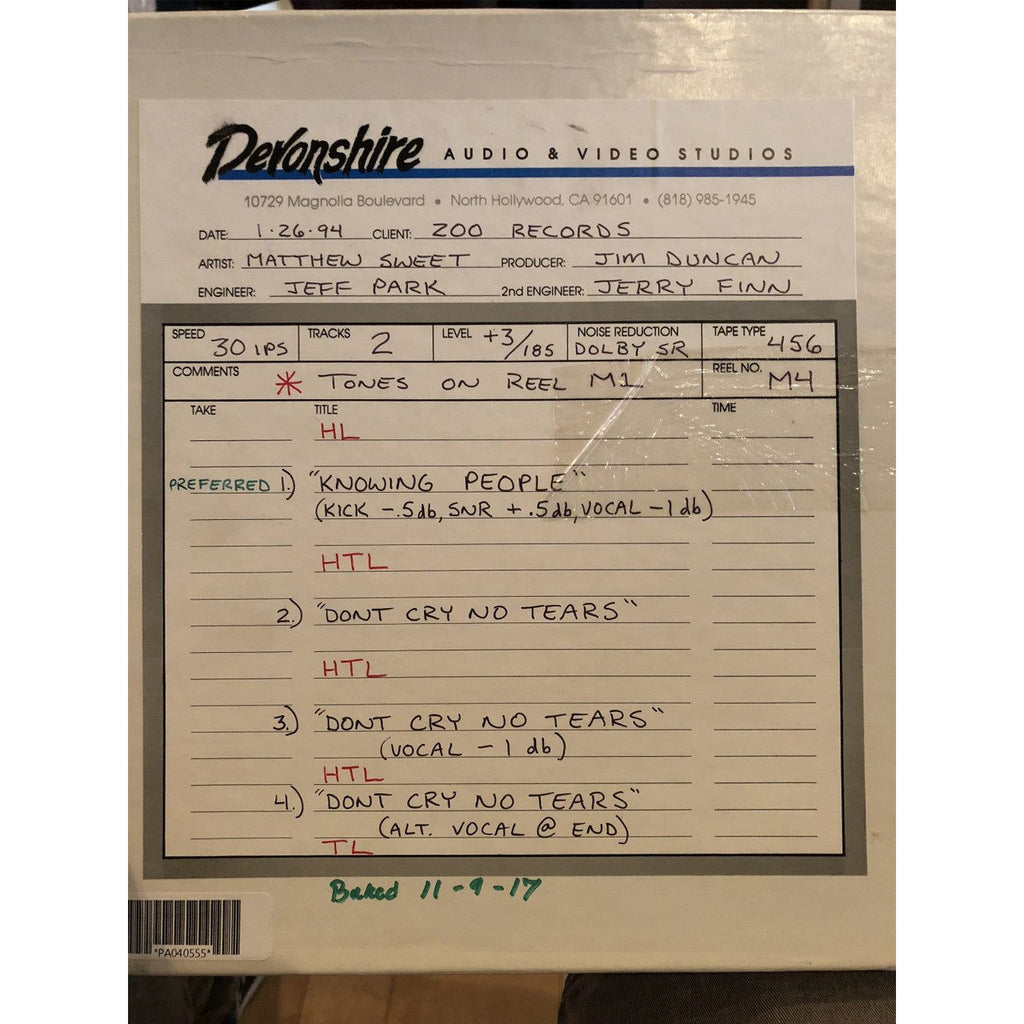 Devonshire AUDIO & VIDEO STUDIOS
10729 Magnolia Boulevard • North Hollywood, CA 91601 • (818) 985-1945
DATE: 1·26·94 CLIENT: ZOO RECORDS
ARTIST: MATTHEW SWEET PRODUCER: JIM DUNCAN
ENGINEER: JEFF PARK 2nd ENGINEER: JERRY FINN
SPEED 30 IPS TRACKS 2 LEVEL +3/185 NOISE REDUCTION DOLBY SR TAPE TYPE 456
COMMENTS * TONES ON REEL M1 REEL NO. M4
TAKE TITLE TIME
HL
PREFERRED 1.) "KNOWING PEOPLE"
(KICK -.5db, SNR +.5db, VOCAL -1db)
HTL
2.) "DONT CRY NO TEARS"
HTL
3.) "DONT CRY NO TEARS"
(VOCAL -1 db)
HTL
4.) "DONT CRY NO TEARS"
(ALT. VOCAL @ END)
TL
Baked 11-9-17
*PA040555*